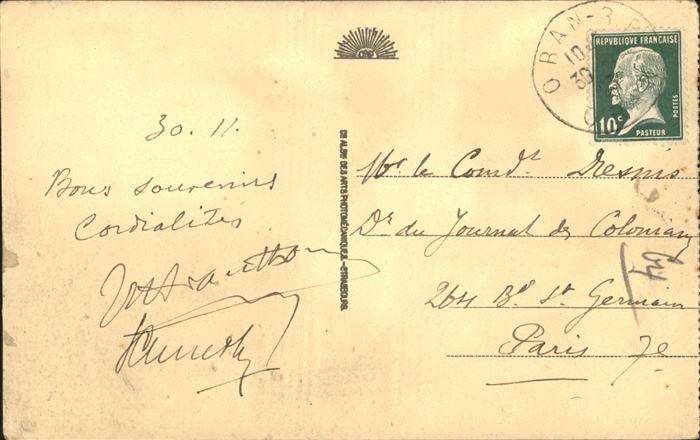 30. 11.
Bons souvenirs
Cordialités
CIE ALSNE DES ARTS PHOTOMÉCANIQUES – STRASBOURG.
ORAN-R.P.
30
REPVBLIQUE FRANÇAISE
10c
POSTES
PASTEUR
Mr le Comdt
Dr du Journal des Coloniaux
264 Bd St Germain
Paris 7e